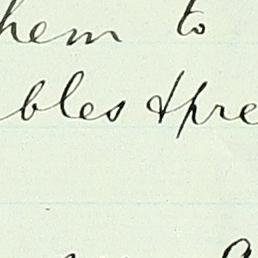 hem to
bles & pre